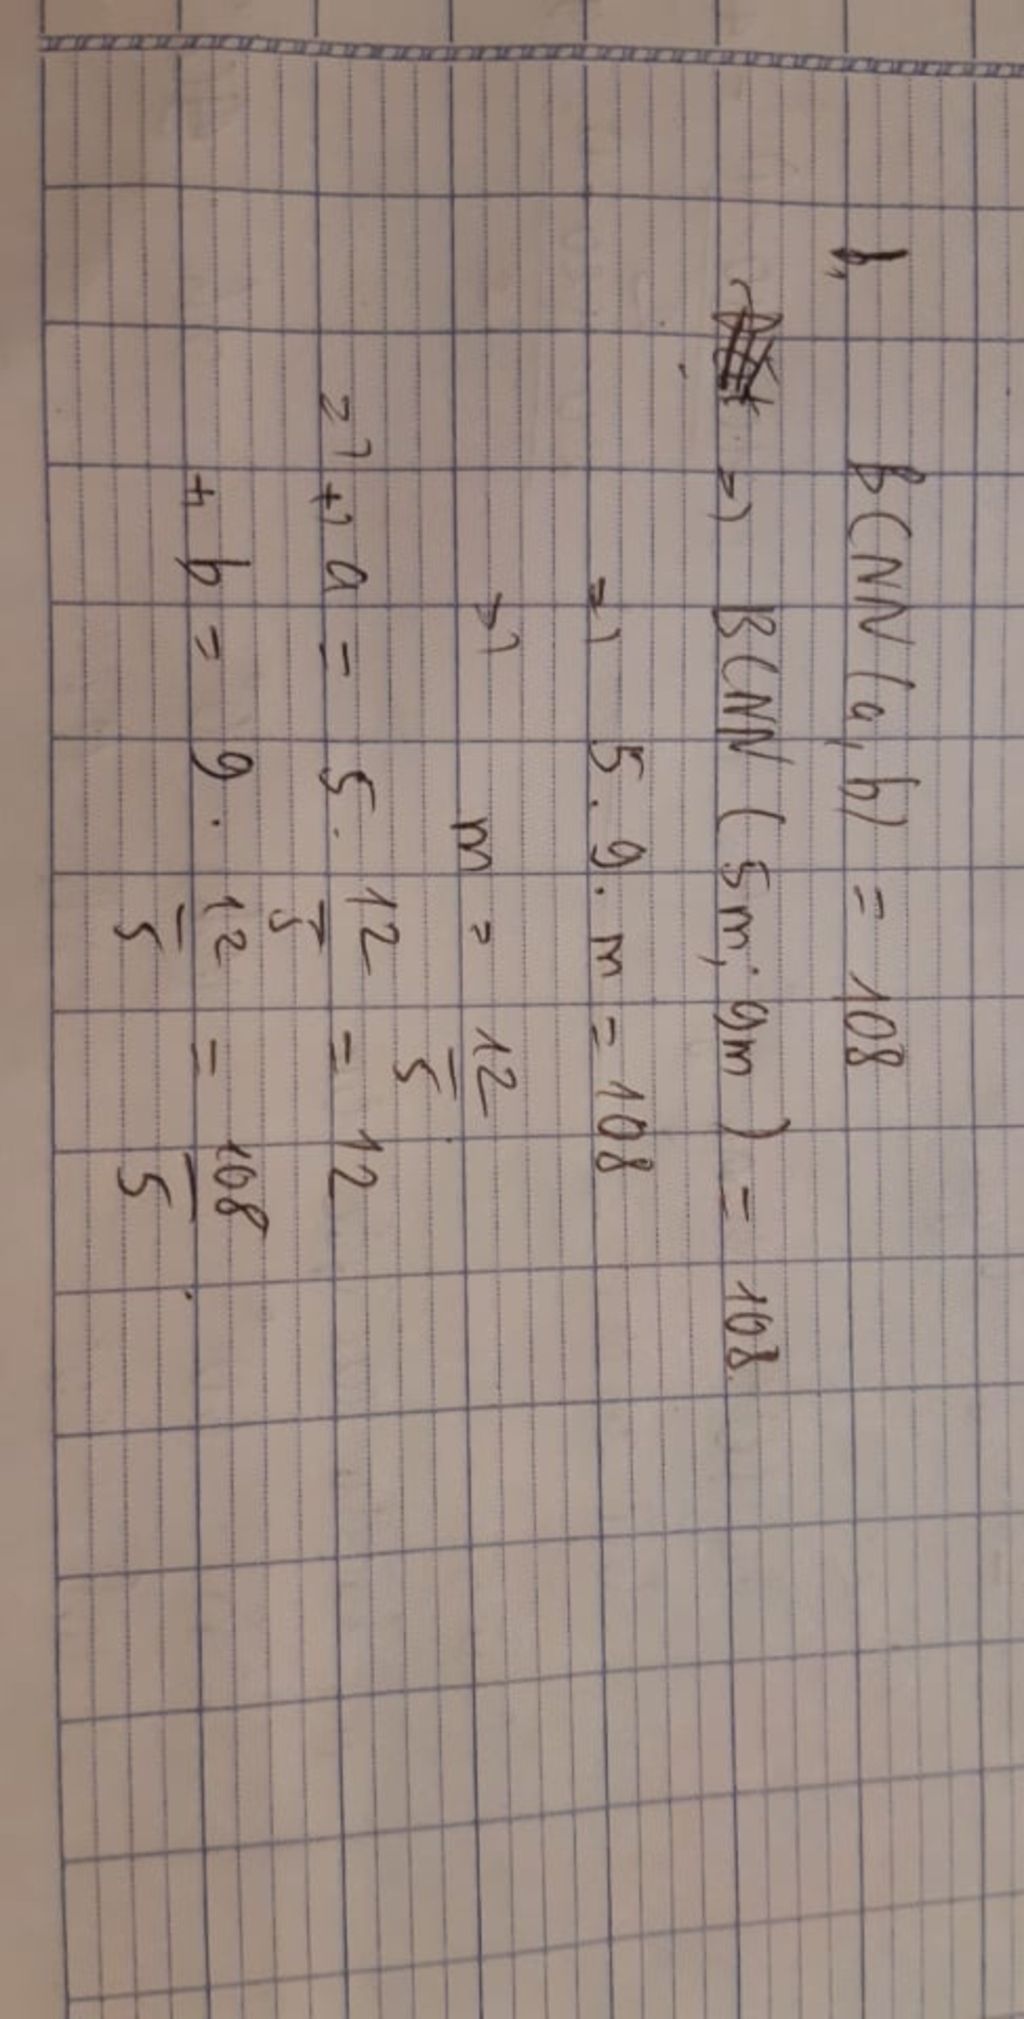 b,
BCNN (a, b) = 108
=) BCNN (5m; 9m) = 108
=) 5.9.m = 108
=) m = 12/5
=) +) a = 5. 12/5 = 12
+, b = 9. 12/5 = 108/5